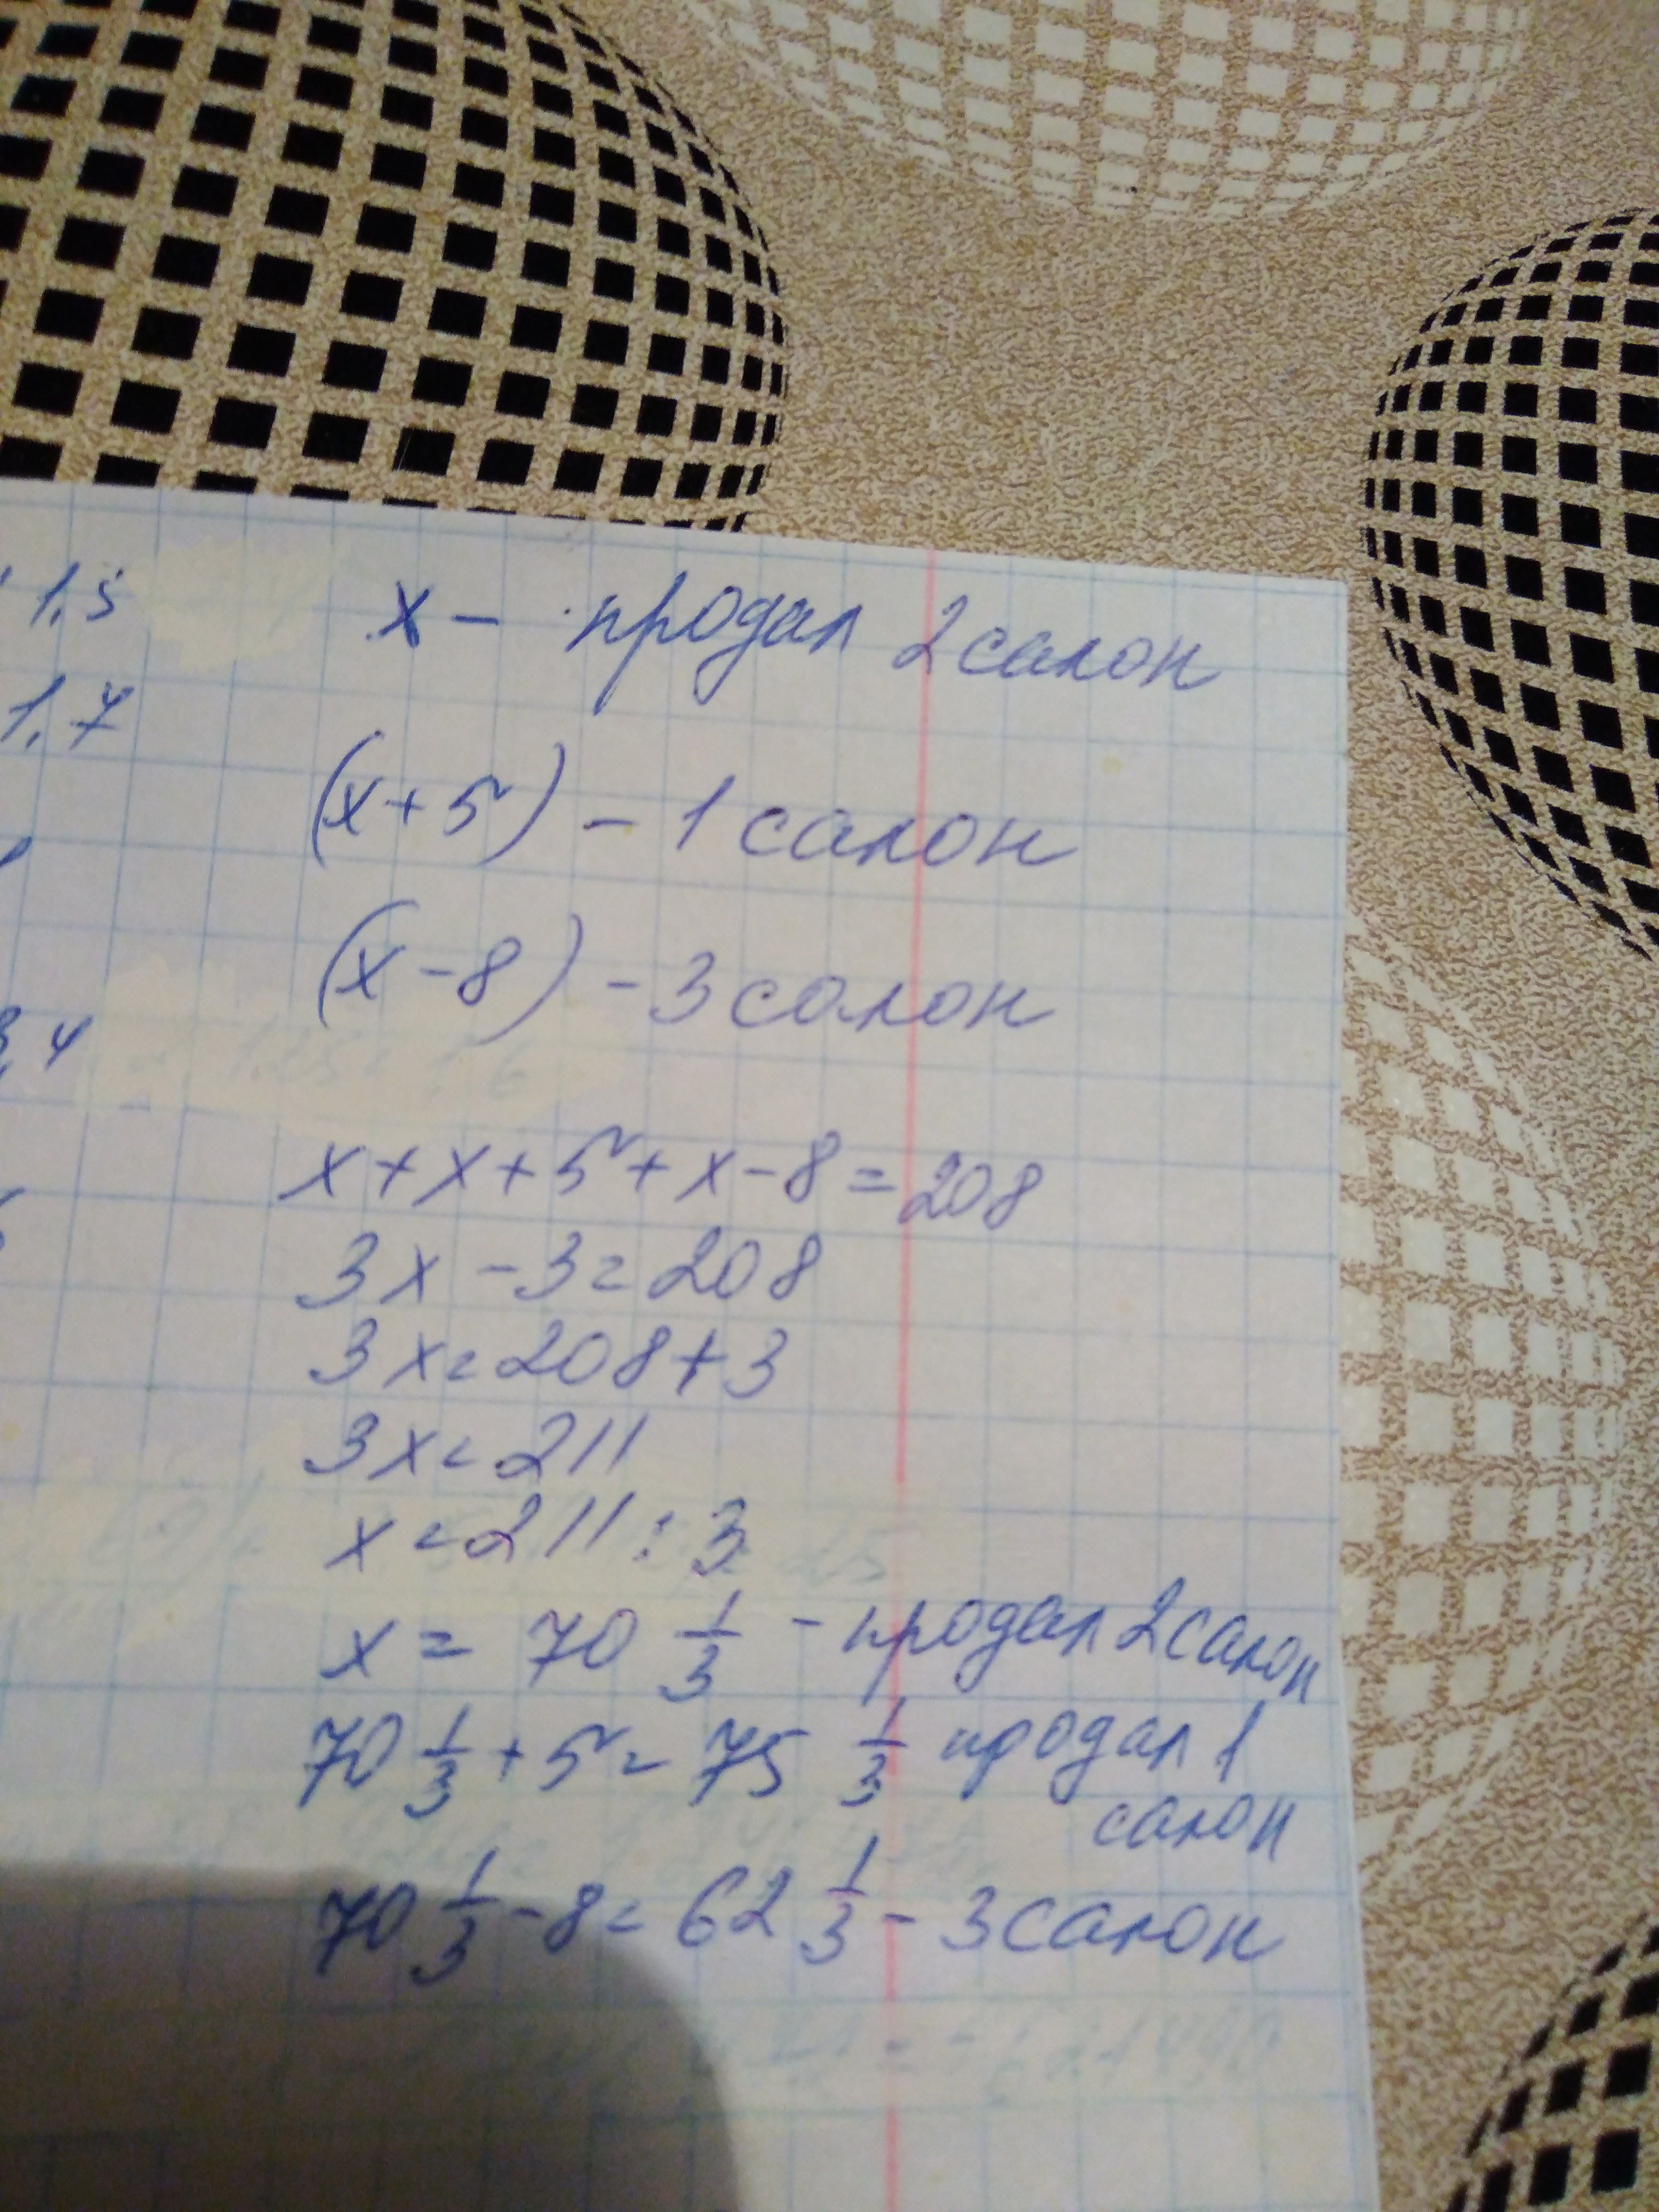 1,5
1,7
3,4
x - продал 2 салон
(x+5) - 1 салон
(x-8) - 3 салон
x+x+5+x-8=208
3x-3=208
3x=208+3
3x=211
x=211:3
x = 70 1/3 - продал 2 салон
70 1/3 + 5 = 75 1/3 продал 1
салон
70 1/3 - 8 = 62 1/3 - 3 салон